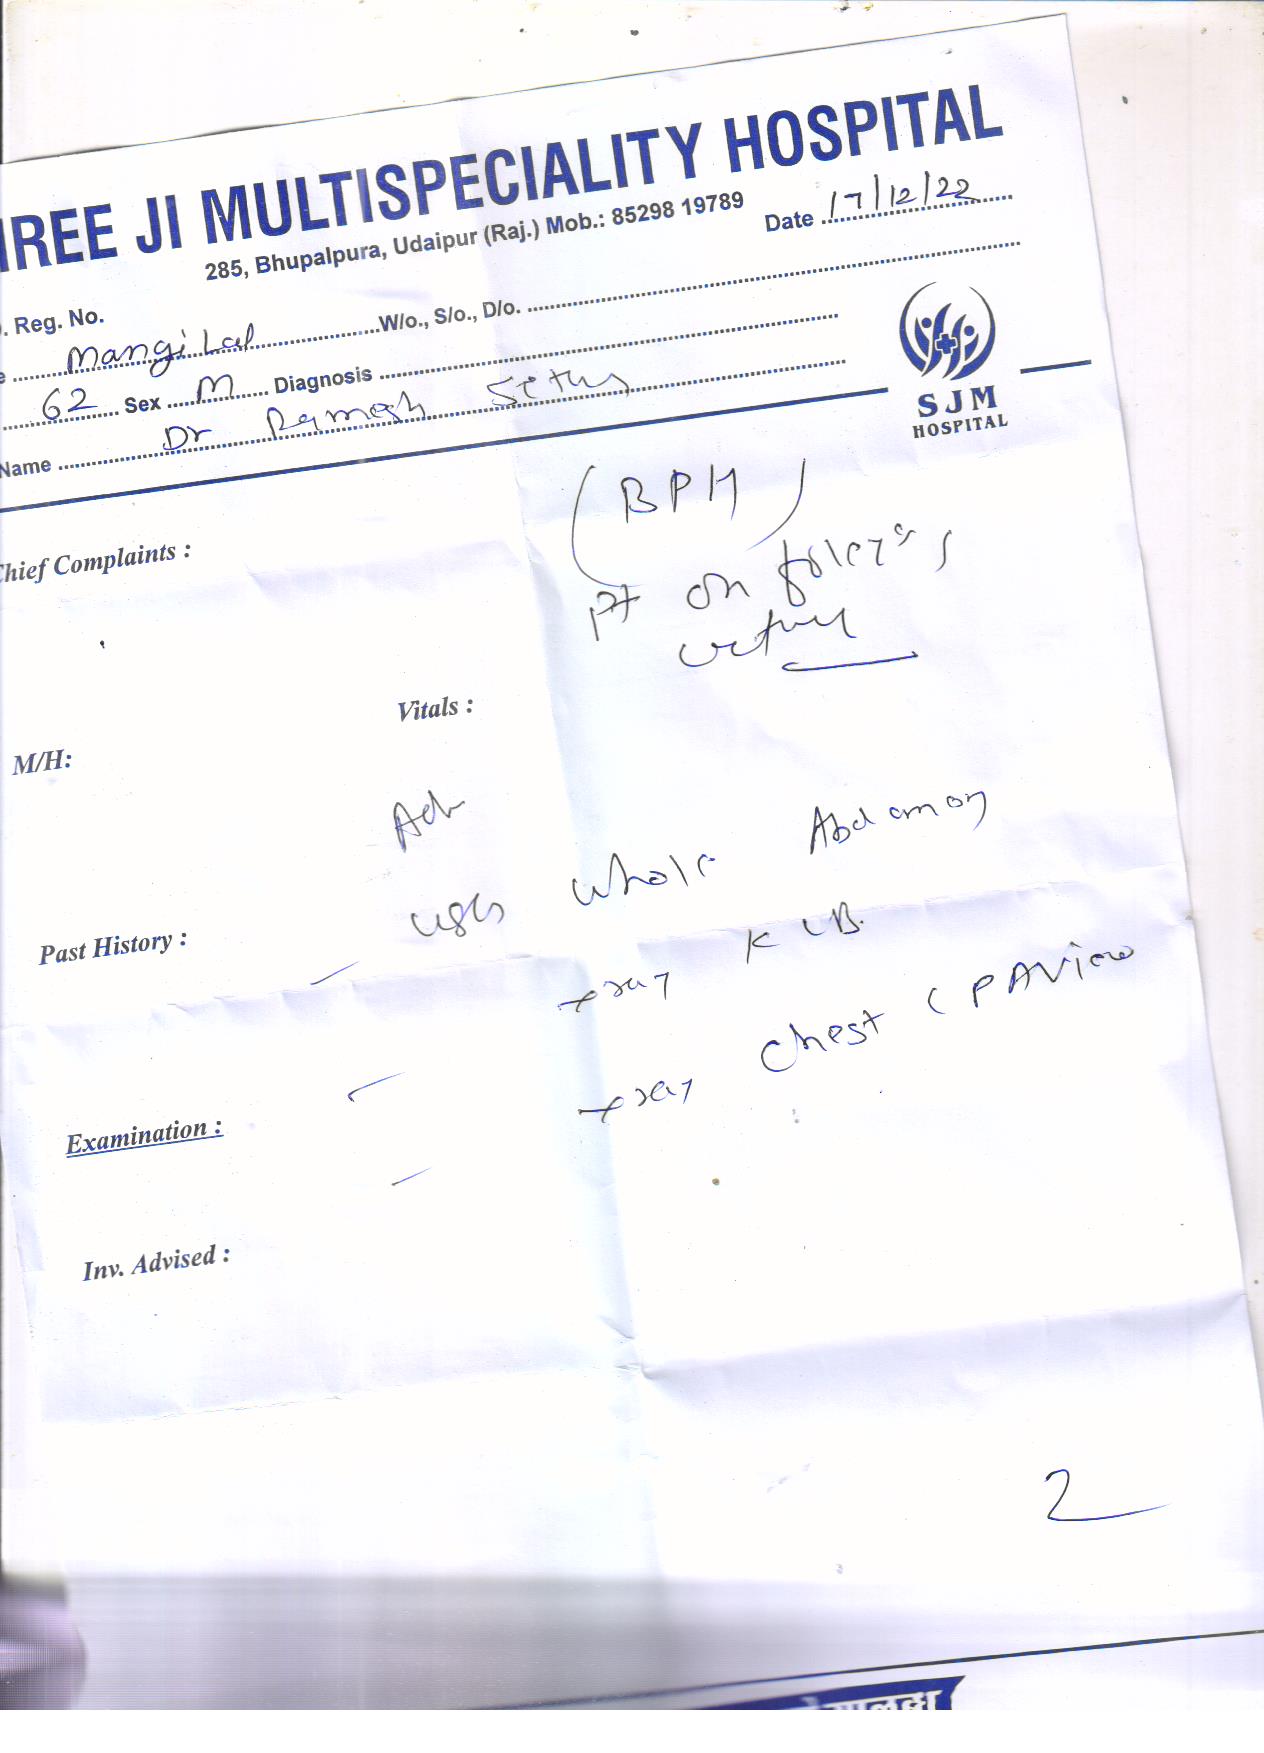 HREE JI MULTISPECIALITY HOSPITAL
285, Bhupalpura, Udaipur (Raj.) Mob.: 85298 19789
Date 17/12/22
. Reg. No.
e Mangi Lal W/o., S/o., D/o.
62 Sex M Diagnosis
Name Dr Ramesh
SJM
HOSPITAL
(BPH)
Chief Complaints :
Pt on foley's
Vitals :
M/H:
Adv
USG whole Abdomen
Past History :
X-ray KUB.
X-ray Chest (PA View
Examination :
Inv. Advised :
2